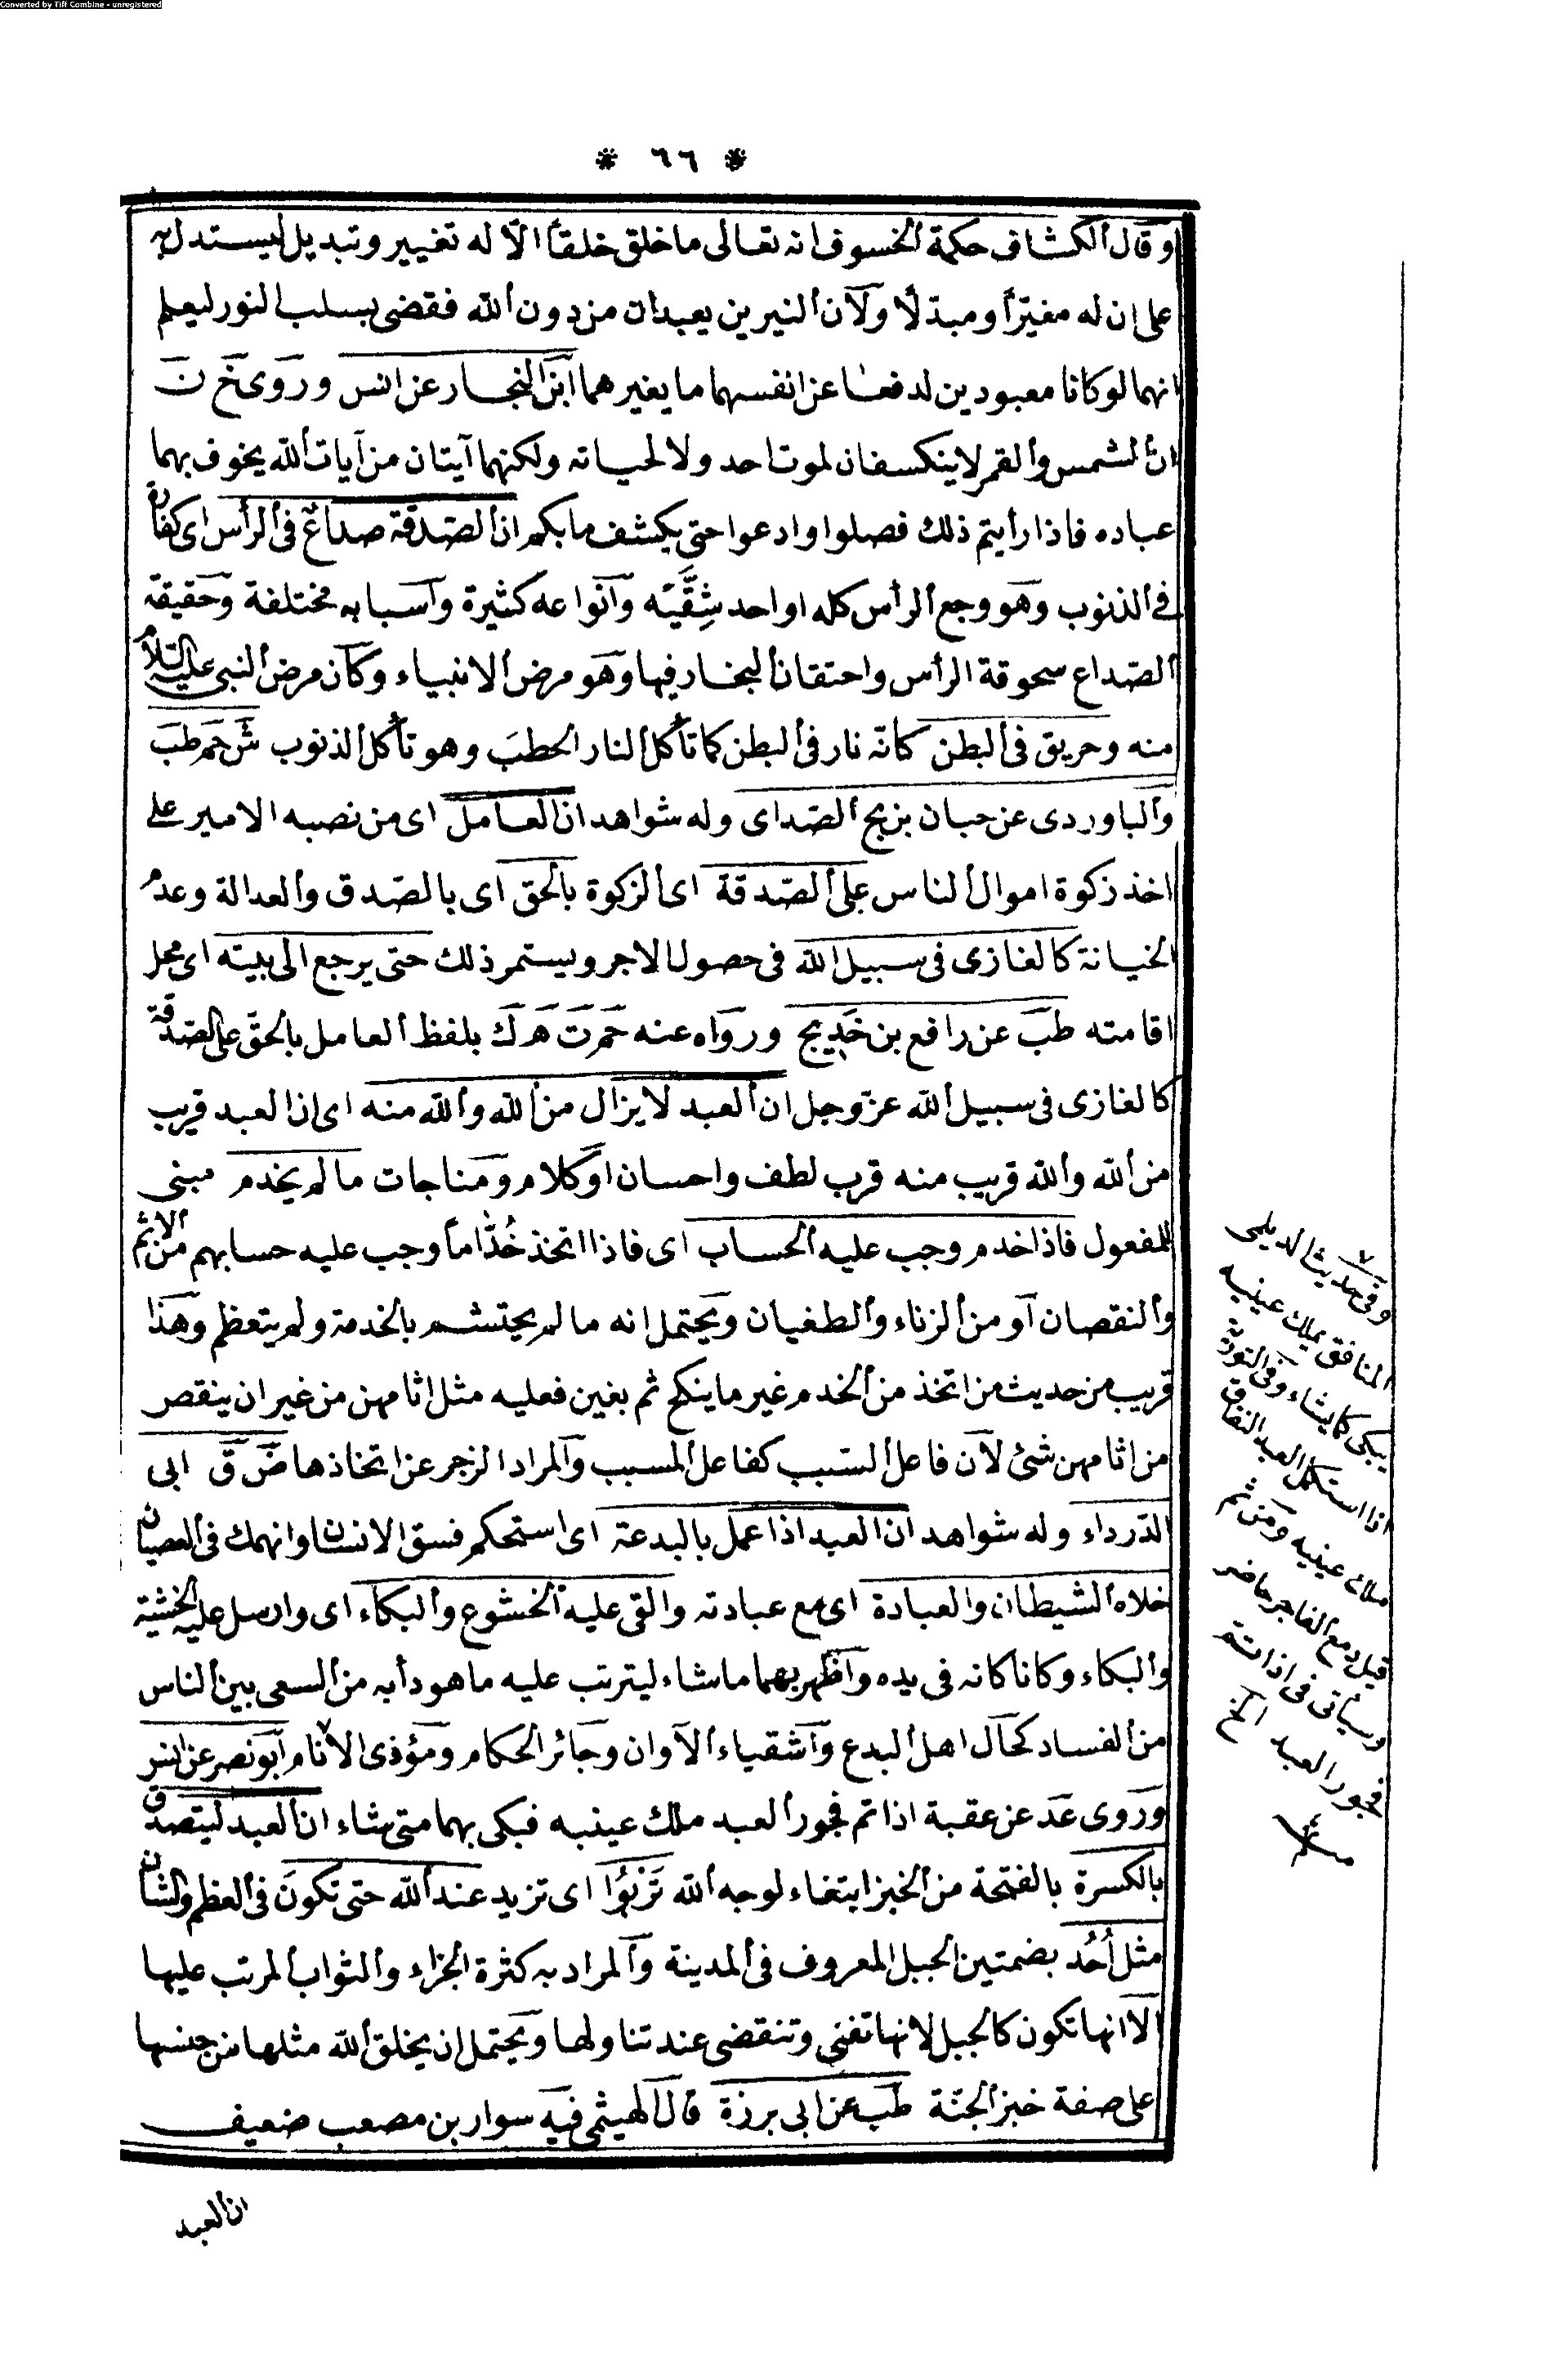 Converted by Tiff Combine - unregistered
* ٦٦ *
وقال الكشاف حكمة الخسوف انه تعالى ما خلق خلقا الا له تغيير وتبديل ليستدل به
على ان له مغيّرا ومبدّلا ولان النيرين يعبدان من دون الله فقضى بسلب النور ليعلم
انهما لو كانا معبودين لدفعا عن انفسهما ما يغيرهما ابن النجار عن انس وروى خ ن
ان الشمس والقمر لا ينكسفان لموت احد ولا لحياته ولكنهما آيتان من آيات الله يخوف بهما
عباده فاذا رأيتم ذلك فصلوا وادعوا حتى يكشف ما بكم ان الصّدقة صداعٌ فى الرأس اى كفارة
فى الذنوب وهو وجع الرأس كله او احد شِقَّيْه وانواعه كثيرة واسبابه مختلفة وحقيقة
الصّداع سحوقة الرأس واحتقان البخار فيها وهو مرض الانبياء وكان مرض النبى عليه السّلام
منه وحريق فى البطن كانّه نار فى البطن كما تأكل النار الحطب وهو تأكل الذنوب ش حم طب
والباوردى عن حبان بن بح الصّداى وله شواهد ان العامل اى من نصبه الامير على
اخذ زكوة اموال الناس على الصّدقة اى الزكوة بالحق اى بالصّدق والعدالة وعدم
الخيانة كالغازى فى سبيل الله فى حصول الاجر ويستمر ذلك حتى يرجع الى بيته اى محل
اقامته طب عن رافع بن خَدِيج ورواه عنه حم د ت ه ك بلفظ العامل بالحقّ على الصّدقة
كالغازى فى سبيل الله عزّ وجل ان العبد لا يزال من الله والله منه اى ان العبد قريب
من الله والله قريب منه قرب لطف واحسان او كلام ومناجات ما لم يخدم مبنى
للمفعول فاذا خدم وجب عليه الحساب اى فاذا اتخذ خُدّاما وجب عليه حسابهم من الاثم
والنقصان او من الزناء والطغيان ويحتمل انه ما لم يحتشم بالخدمة ولم يتعظم وهذا
قريب من حديث من اتخذ من الخدم غير ما ينكح ثم بغين فعليه مثل اثامهن من غير ان ينقص
من اثامهن شئ لان فاعل السّبب كفاعل المسبب والمراد الزجر عن اتخاذها ض ق ابى
الدّرداء وله شواهد ان العبد اذا عمل بالبدعة اى استحكم فسق الانسان وانهمك فى العصيان
خلاه الشيطان والعبادة اى مع عبادته والقى عليه الخشوع والبكاء اى وارسل عليه الخشية
والبكاء وكانا كانه فى يده واظهر بهما ما شاء ليترتب عليه ما هو دأبه من السعى بين الناس
من الفساد كحال اهل البدع واشقياء الاوان وجائر الحكام ومؤذى الانام ٧ ابو نصر عن انس
وروى عد عن عقبة اذا تم فجور العبد ملك عينيه فبكى بهما متى شاء ان العبد ليتصدق
بالكسرة بالفتحة من الخبز ابتغاء لوجه الله تَرْبُوا اى تزيد عند الله حتى تكون فى العظم والشان
مثل اُحُد بضمتين الجبل المعروف فى المدينة والمراد به كثرة الجزاء والثواب المرتب عليها
الا انها تكون كالجبل لانها تفنى وتنقضى عند تناولها ويحتمل ان يخلق الله مثلها من جنسها
على صفة خبز الجنّة طب عن ابى برزة قال الهيثمى فيه سوار بن مصعب ضعيف
ان العبد
٧
وفى حديث الديلمى
المنافق يملك عينيه
يبكى كما يشاء وفى التورية
اذا استكمل العبد النفاق
ملك عينيه ومن ثم
قيل دمع الفاجر حاضر
وسيأتى فى اذا تم
فجور العبد الخ